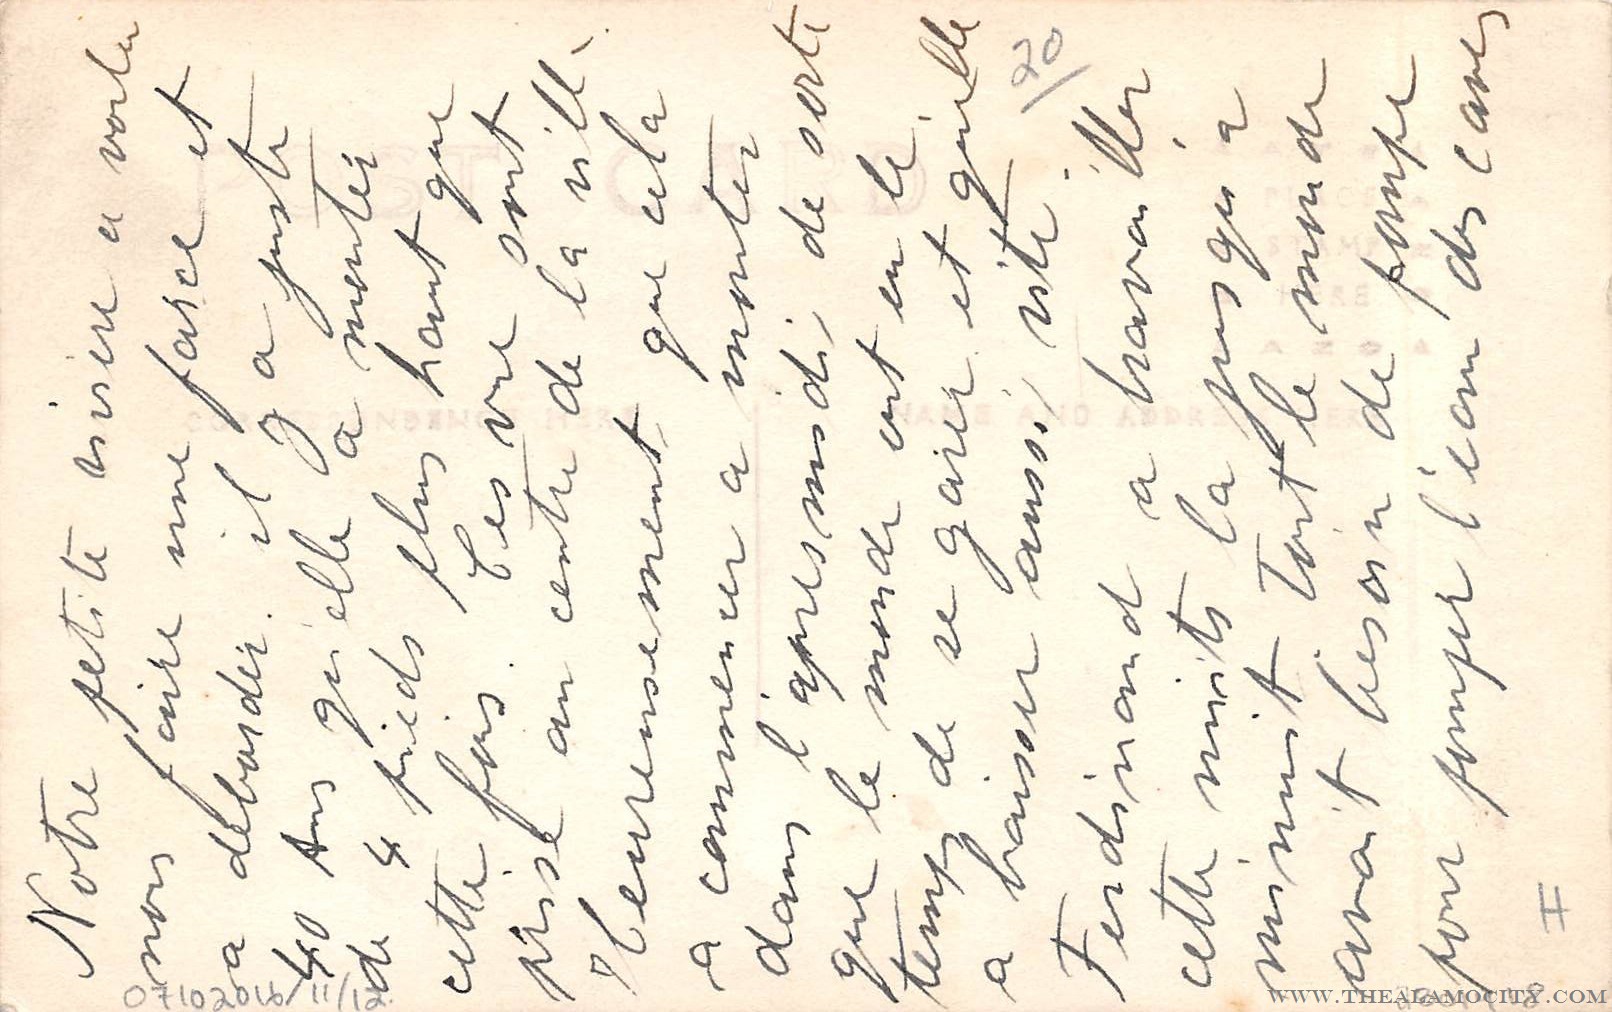 Notre petite risière a voulu
nous faire une farce et
a débordér. il y a juste
40 Ans qu'elle a montér
de 4 pieds plus haut que
cette fois. Ces vue sont
prise au centre de la ville.
Heureusement, que cela
a commencer a monter
dans l'apresmidi, de sorte
que le monde ont eu le
temps de se garer et qu'elle
a baisser aussi vite.
Ferdinand a travailler
cette nuits la jusqu'a
minuit Tout le monde
avait besoin de pompe
pour pomper l'eau des caves
20
I
07102016/11/12
POST CARD
PLACE
STAMP
HERE
CORRESPONDENCE HERE
NAME AND ADDRESS HERE
WWW.THEALAMOCITY.COM